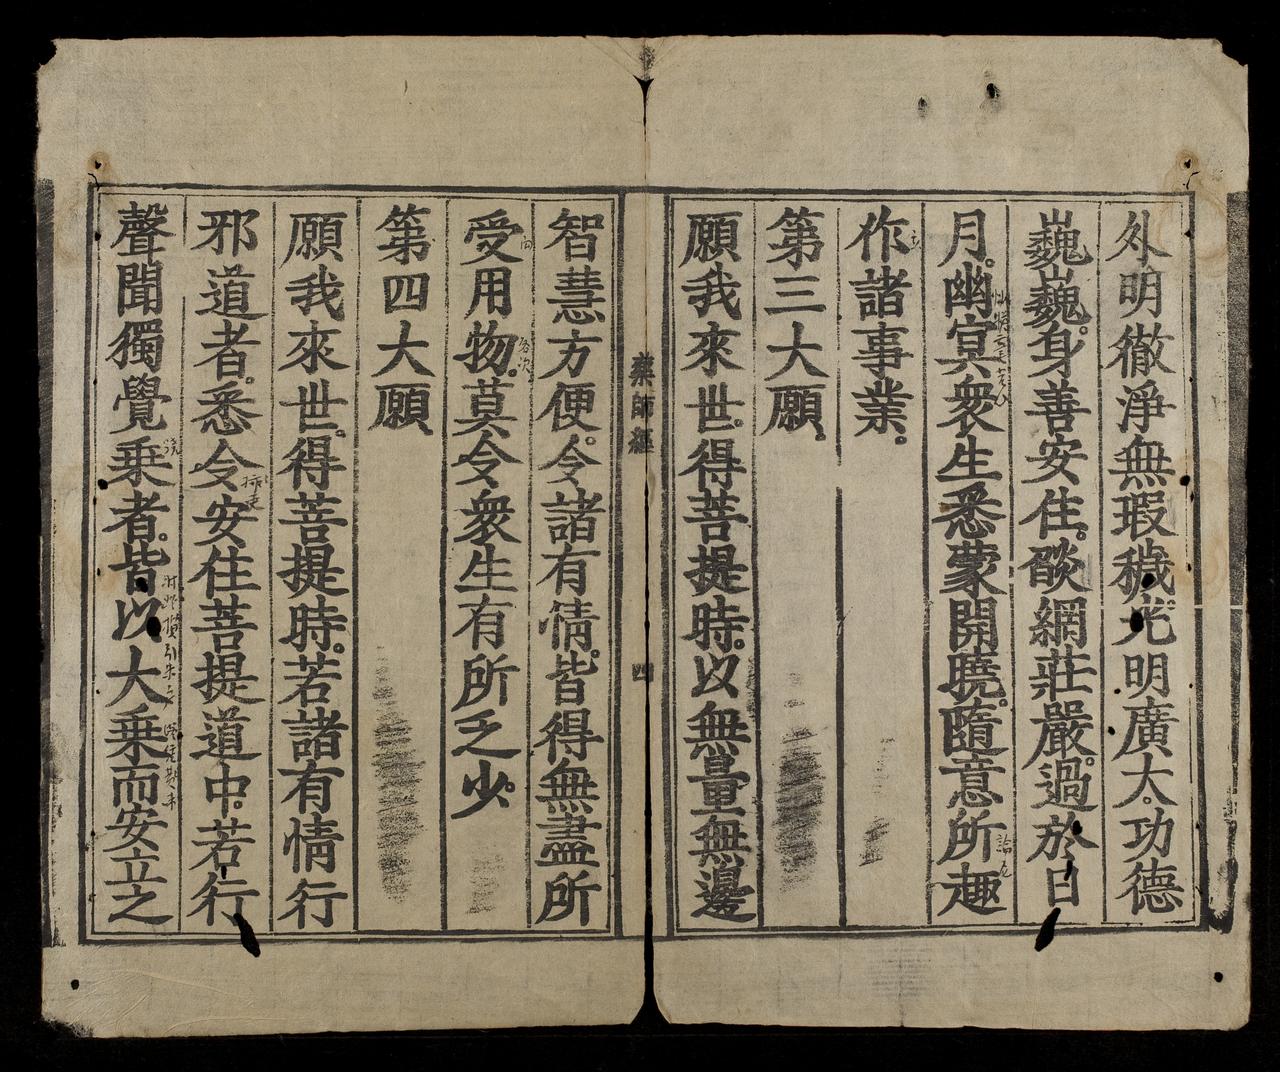 外明徹淨無瑕穢光明廣大。功德
巍巍。身善安住。燄網莊嚴。過於日
月。幽冥衆生悉蒙開曉。隨意所趣
作諸事業。
第三大願。
願我來世。得菩提時。以無量無邊
藥師經
四
智慧方便。令諸有情。皆得無盡所
受用物。莫令衆生有所乏少。
第四大願
願我來世。得菩提時。若諸有情行
邪道者。悉令安住菩提道中。若行
聲聞獨覺乘者。皆以大乘而安立之